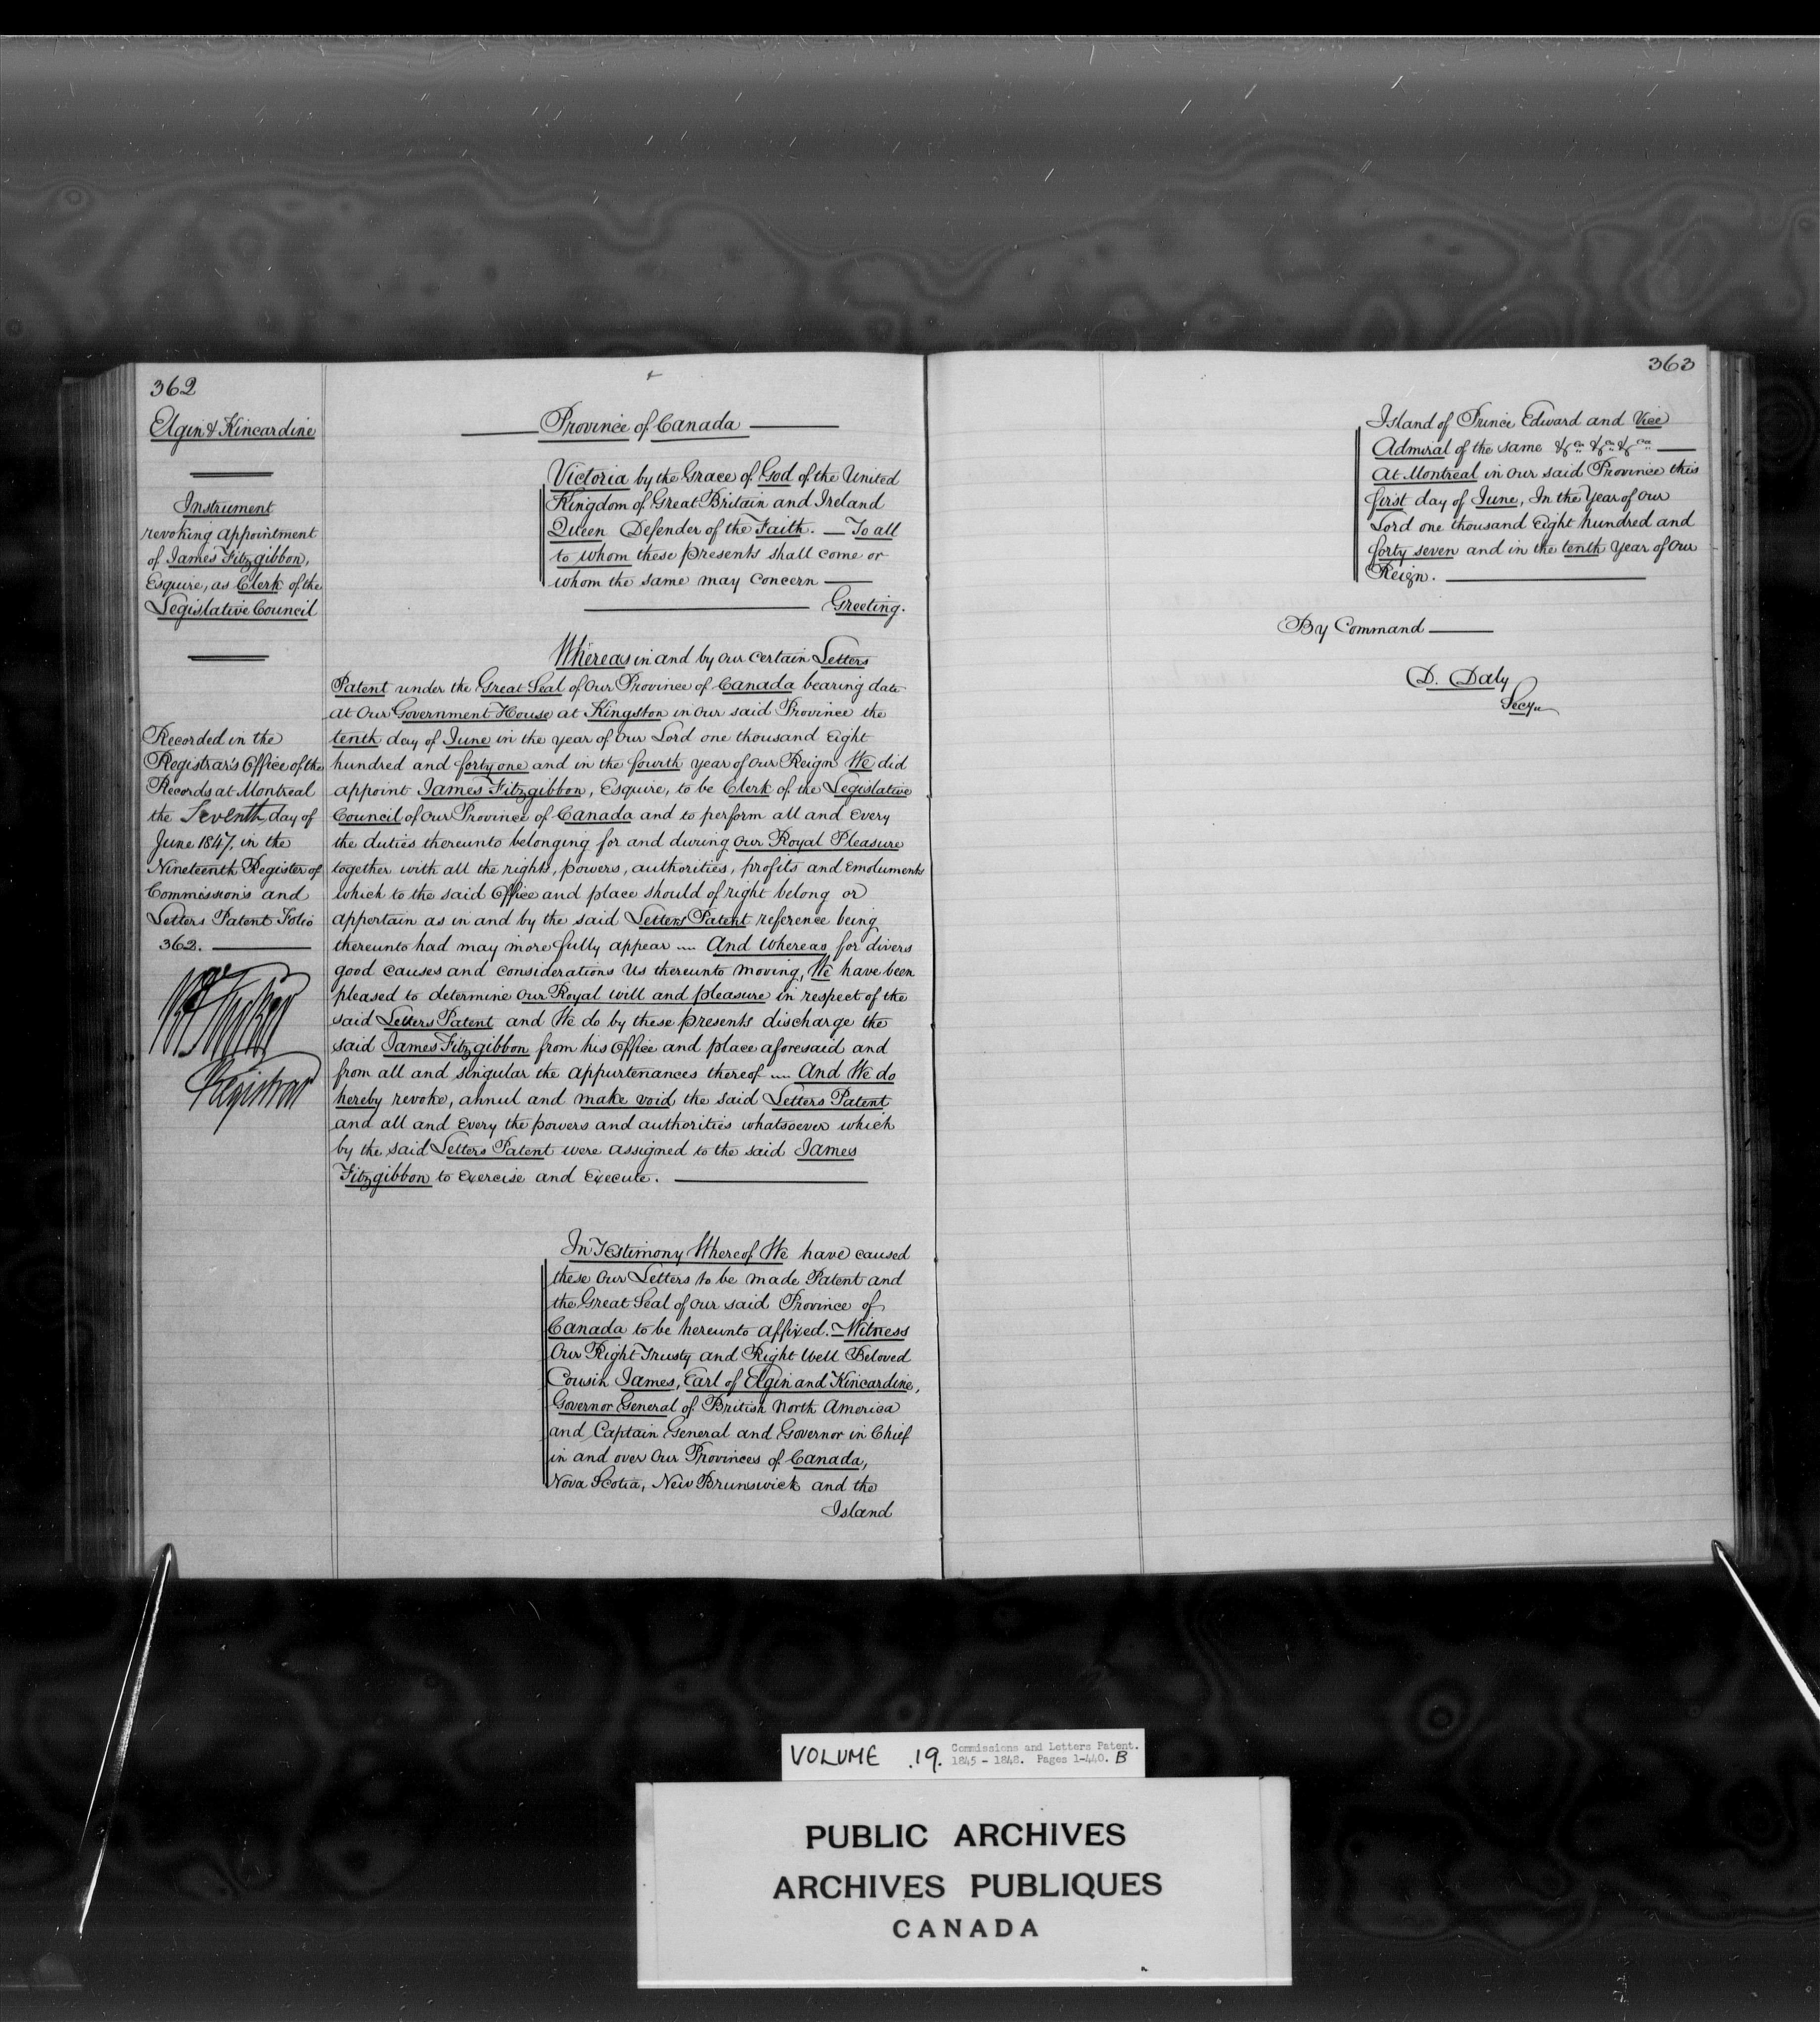 362
Elgin & Kincardine
Instrument
revoking appointment
of James Fitzgibbon,
Esquire, as Clerk of the
Legislative Council
Recorded in the
Registrar's Office of the
Records at Montreal
the Seventh day of
June 1847, in the
Nineteenth Register of
Commissions and
Letters Patent Folio
362.
Registrar
Province of Canada
Victoria by the Grace of God of the United
Kingdom of Great Britain and Ireland
Queen Defender of the Faith. — To all
to whom these presents shall come or
whom the same may concern —
Greeting.
Whereas in and by our certain Letters
Patent under the Great Seal of Our Province of Canada bearing date
at Our Government House at Kingston in Our said Province the
tenth day of June in the year of Our Lord one thousand Eight
hundred and forty one and in the fourth year of Our Reign We did
appoint James Fitzgibbon, Esquire, to be Clerk of the Legislative
Council of Our Province of Canada and to perform all and Every
the duties thereunto belonging for and during Our Royal Pleasure
together with all the rights, powers, authorities, profits and Emoluments
which to the said Office and place should of right belong or
appertain as in and by the said Letters Patent reference being
thereunto had may more fully appear — And Whereas for divers
good causes and considerations Us thereunto moving, We have been
pleased to determine Our Royal will and pleasure in respect of the
said Letters Patent and We do by these presents discharge the
said James Fitzgibbon from his Office and place aforesaid and
from all and singular the appurtenances thereof — And We do
hereby revoke, annul and make void the said Letters Patent
and all and Every the powers and authorities whatsoever which
by the said Letters Patent were assigned to the said James
Fitzgibbon to Exercise and Execute.
In Testimony Whereof We have caused
these Our Letters to be made Patent and
the Great Seal of Our said Province of
Canada to be hereunto affixed. — Witness
Our Right Trusty and Right Well Beloved
Cousin James, Earl of Elgin and Kincardine,
Governor General of British North America
and Captain General and Governor in Chief
in and over Our Provinces of Canada,
Nova Scotia, New Brunswick and the
Island
363
Island of Prince Edward and Vice
Admiral of the same &ca &ca &ca —
At Montreal in Our said Province this
first day of June, In the Year of Our
Lord one thousand Eight hundred and
forty seven and in the tenth Year of Our
Reign.
By Command —
D. Daly
Secy
VOLUME .19. Commissions and Letters Patent.
1845 - 1848. Pages 1-440. B
PUBLIC ARCHIVES
ARCHIVES PUBLIQUES
CANADA